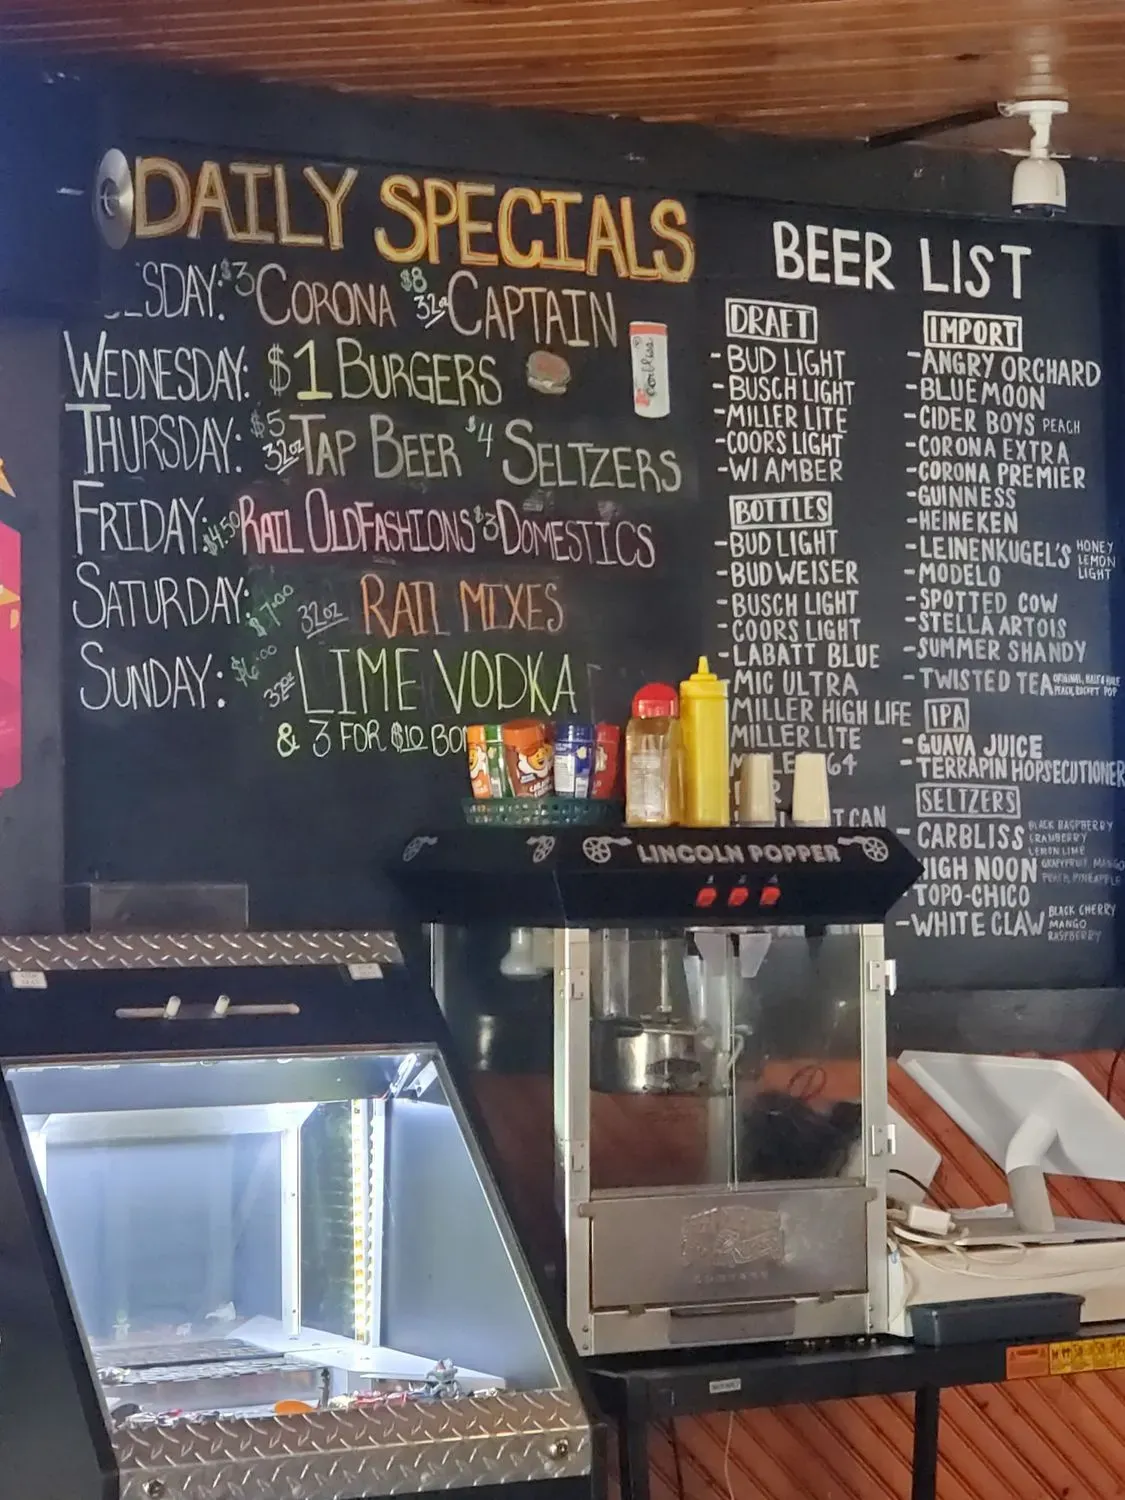 DAILY SPECIALS
SDAY: $3 CORONA $8 32oz CAPTAIN
WEDNESDAY: $1 BURGERS
THURSDAY: $5 32oz TAP BEER $4 SELTZERS
FRIDAY: $4.50 RAIL OLDFASHIONS $3 DOMESTICS
SATURDAY: $7.00 32oz RAIL MIXES
SUNDAY: $6.00 32oz LIME VODKA
& 3 FOR $10 BO
Carbliss
BEER LIST
DRAFT
-BUD LIGHT
-BUSCH LIGHT
-MILLER LITE
-COORS LIGHT
-WI AMBER
BOTTLES
-BUD LIGHT
-BUDWEISER
-BUSCH LIGHT
-COORS LIGHT
-LABATT BLUE
MIC ULTRA
MILLER HIGH LIFE
MILLER LITE
64
T CAN
IMPORT
-ANGRY ORCHARD
-BLUE MOON
-CIDER BOYS PEACH
-CORONA EXTRA
-CORONA PREMIER
-GUINNESS
-HEINEKEN
-LEINENKUGEL'S HONEY
LEMON
LIGHT
-MODELO
-SPOTTED COW
-STELLA ARTOIS
-SUMMER SHANDY
-TWISTED TEA ORIGINAL, HALF & HALF
PEACH, ROCKET POP
IPA
-GUAVA JUICE
-TERRAPIN HOPSECUTIONER
SELTZERS
-CARBLISS BLACK RASPBERRY
CRANBERRY
LEMON LIME
HIGH NOON GRAPEFRUIT, MANGO
PEACH, PINEAPPLE
TOPO-CHICO
-WHITE CLAW BLACK CHERRY
MANGO
RASPBERRY
LINCOLN POPPER